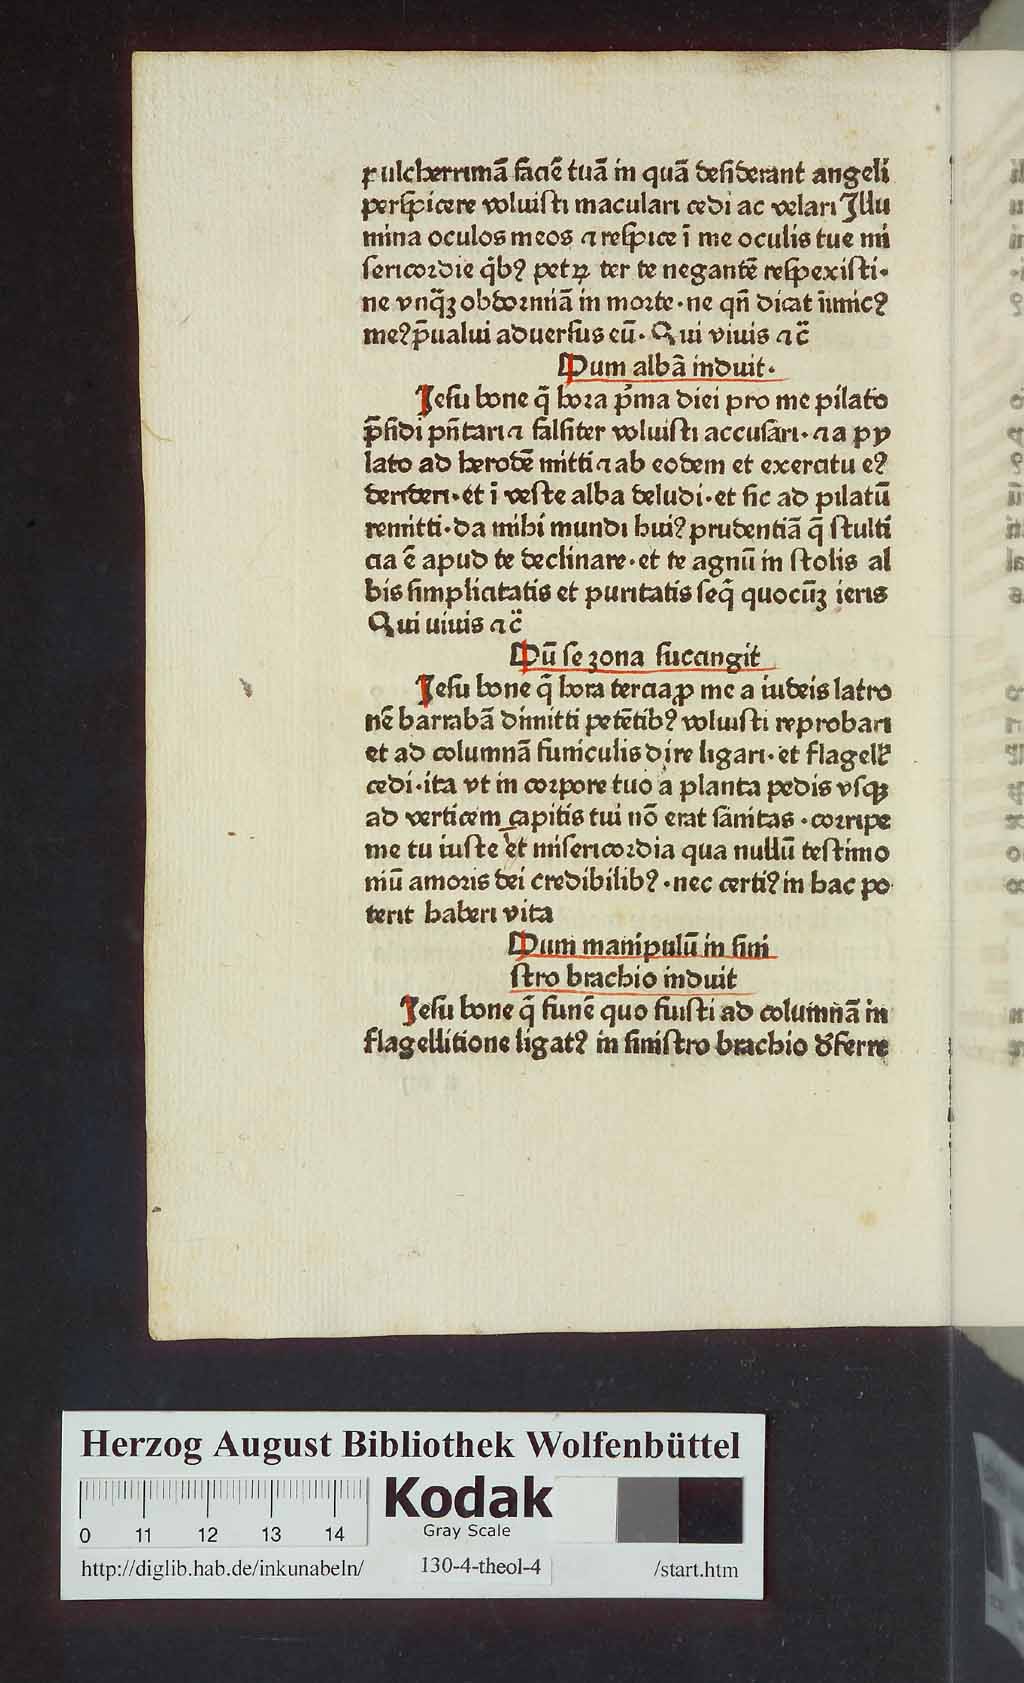 pulcherrimā faciē tuā in quā desiderant angeli
perspicere voluisti maculari cedi ac velari Illu
mina oculos meos ⁊ respice ī me oculis tue mi
sericordie q̇bꝰ petꝝ ter te negantē respexisti·
ne vnq̄ꝫ obdormiā in morte·ne qn̄ dicat īimicꝰ
meꝰ p̄ualui aduersus eū· Qui viuis ⁊c̄
Dum albā induit·
Jesu bone q̄ hora pͥma diei pro me pilato
p̄sidi pn̄tari ⁊ falsiter voluisti accusari· ⁊ a py
lato ad herodē mitti ⁊ ab eodem et exercitu eꝰ
derideri·et ī veste alba deludi·et sic ad pilatū
remitti·da mihi mundi huiꝰ prudentiā q̄ stulti
cia ē apud te declinare·et te agnū in stolis al
bis simplicitatis et puritatis seq̄ quocūꝫ ieris
Qui uiuis ⁊c̄
Dū se zona succingit
Jesu bone q̄ hora tercia ꝓ me a iudeis latro
nē barrabā dimitti petētibꝰ voluisti reprobari
et ad columnā funiculis dire ligari·et flagellꝭ
cedi·ita vt in corpore tuo a planta pedis vsqꝫ
ad verticem capitis tui nō erat sanitas ·corripe
me tu iuste et misericordia qua nullū testimo
niū amoris dei credibilibꝰ·nec certiꝰ in hac po
terit haberi vita
Dum manipulū in sini
stro brachio induit
Jesu bone q̄ funē quo fuisti ad columnā in
flagellitione ligatꝰ in sinistro brachio dꝰferre
Herzog August Bibliothek Wolfenbüttel
Kodak
Gray Scale
0 11 12 13 14
http://diglib.hab.de/inkunabeln/ 130-4-theol-4 /start.htm